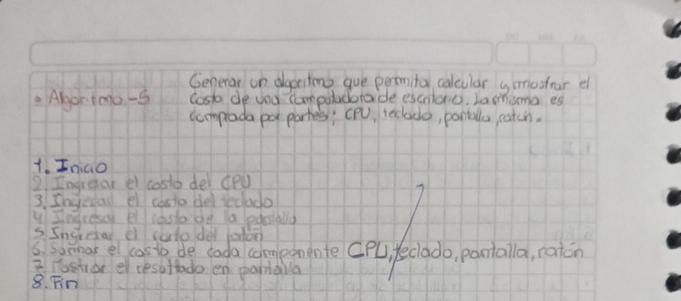 Generar un algoritmo que permita calcular y mostrar el
• Algoritmo-5 costo de una computadora de escritorio. La misma es
comprada por partes: CPU, teclado, pantalla, ratón.
1. Inicio
2. Ingresar el costo del CPU
3. Ingresar el costo del teclado
4 Ingresar el costo de la pantalla
5. Ingresar el costo del ratón
6. Sumar el costo de cada componente CPU, teclado, pantalla, ratón
7. Mostrar el resultado en pantalla
8. Fin